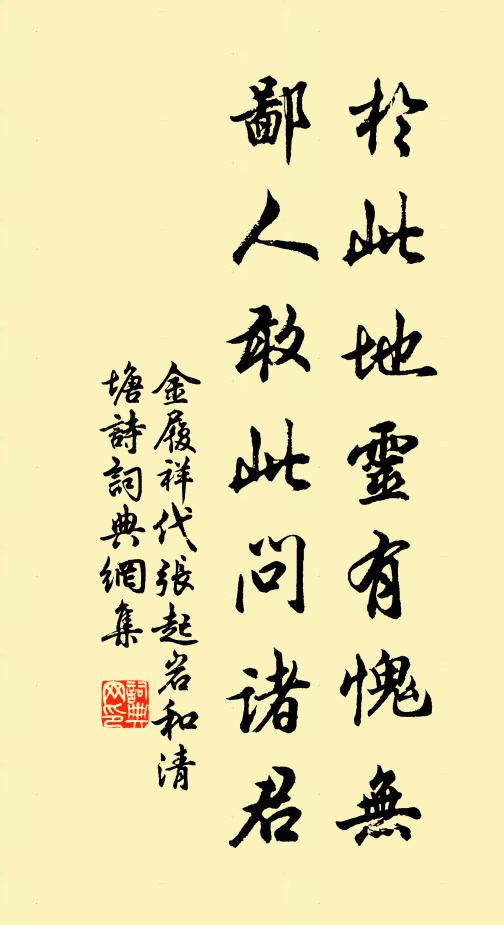 於此地靈有愧無
鄙人敢此問諸君
金履祥代張起岩和清
塘詩詞典網集
詞典
网印